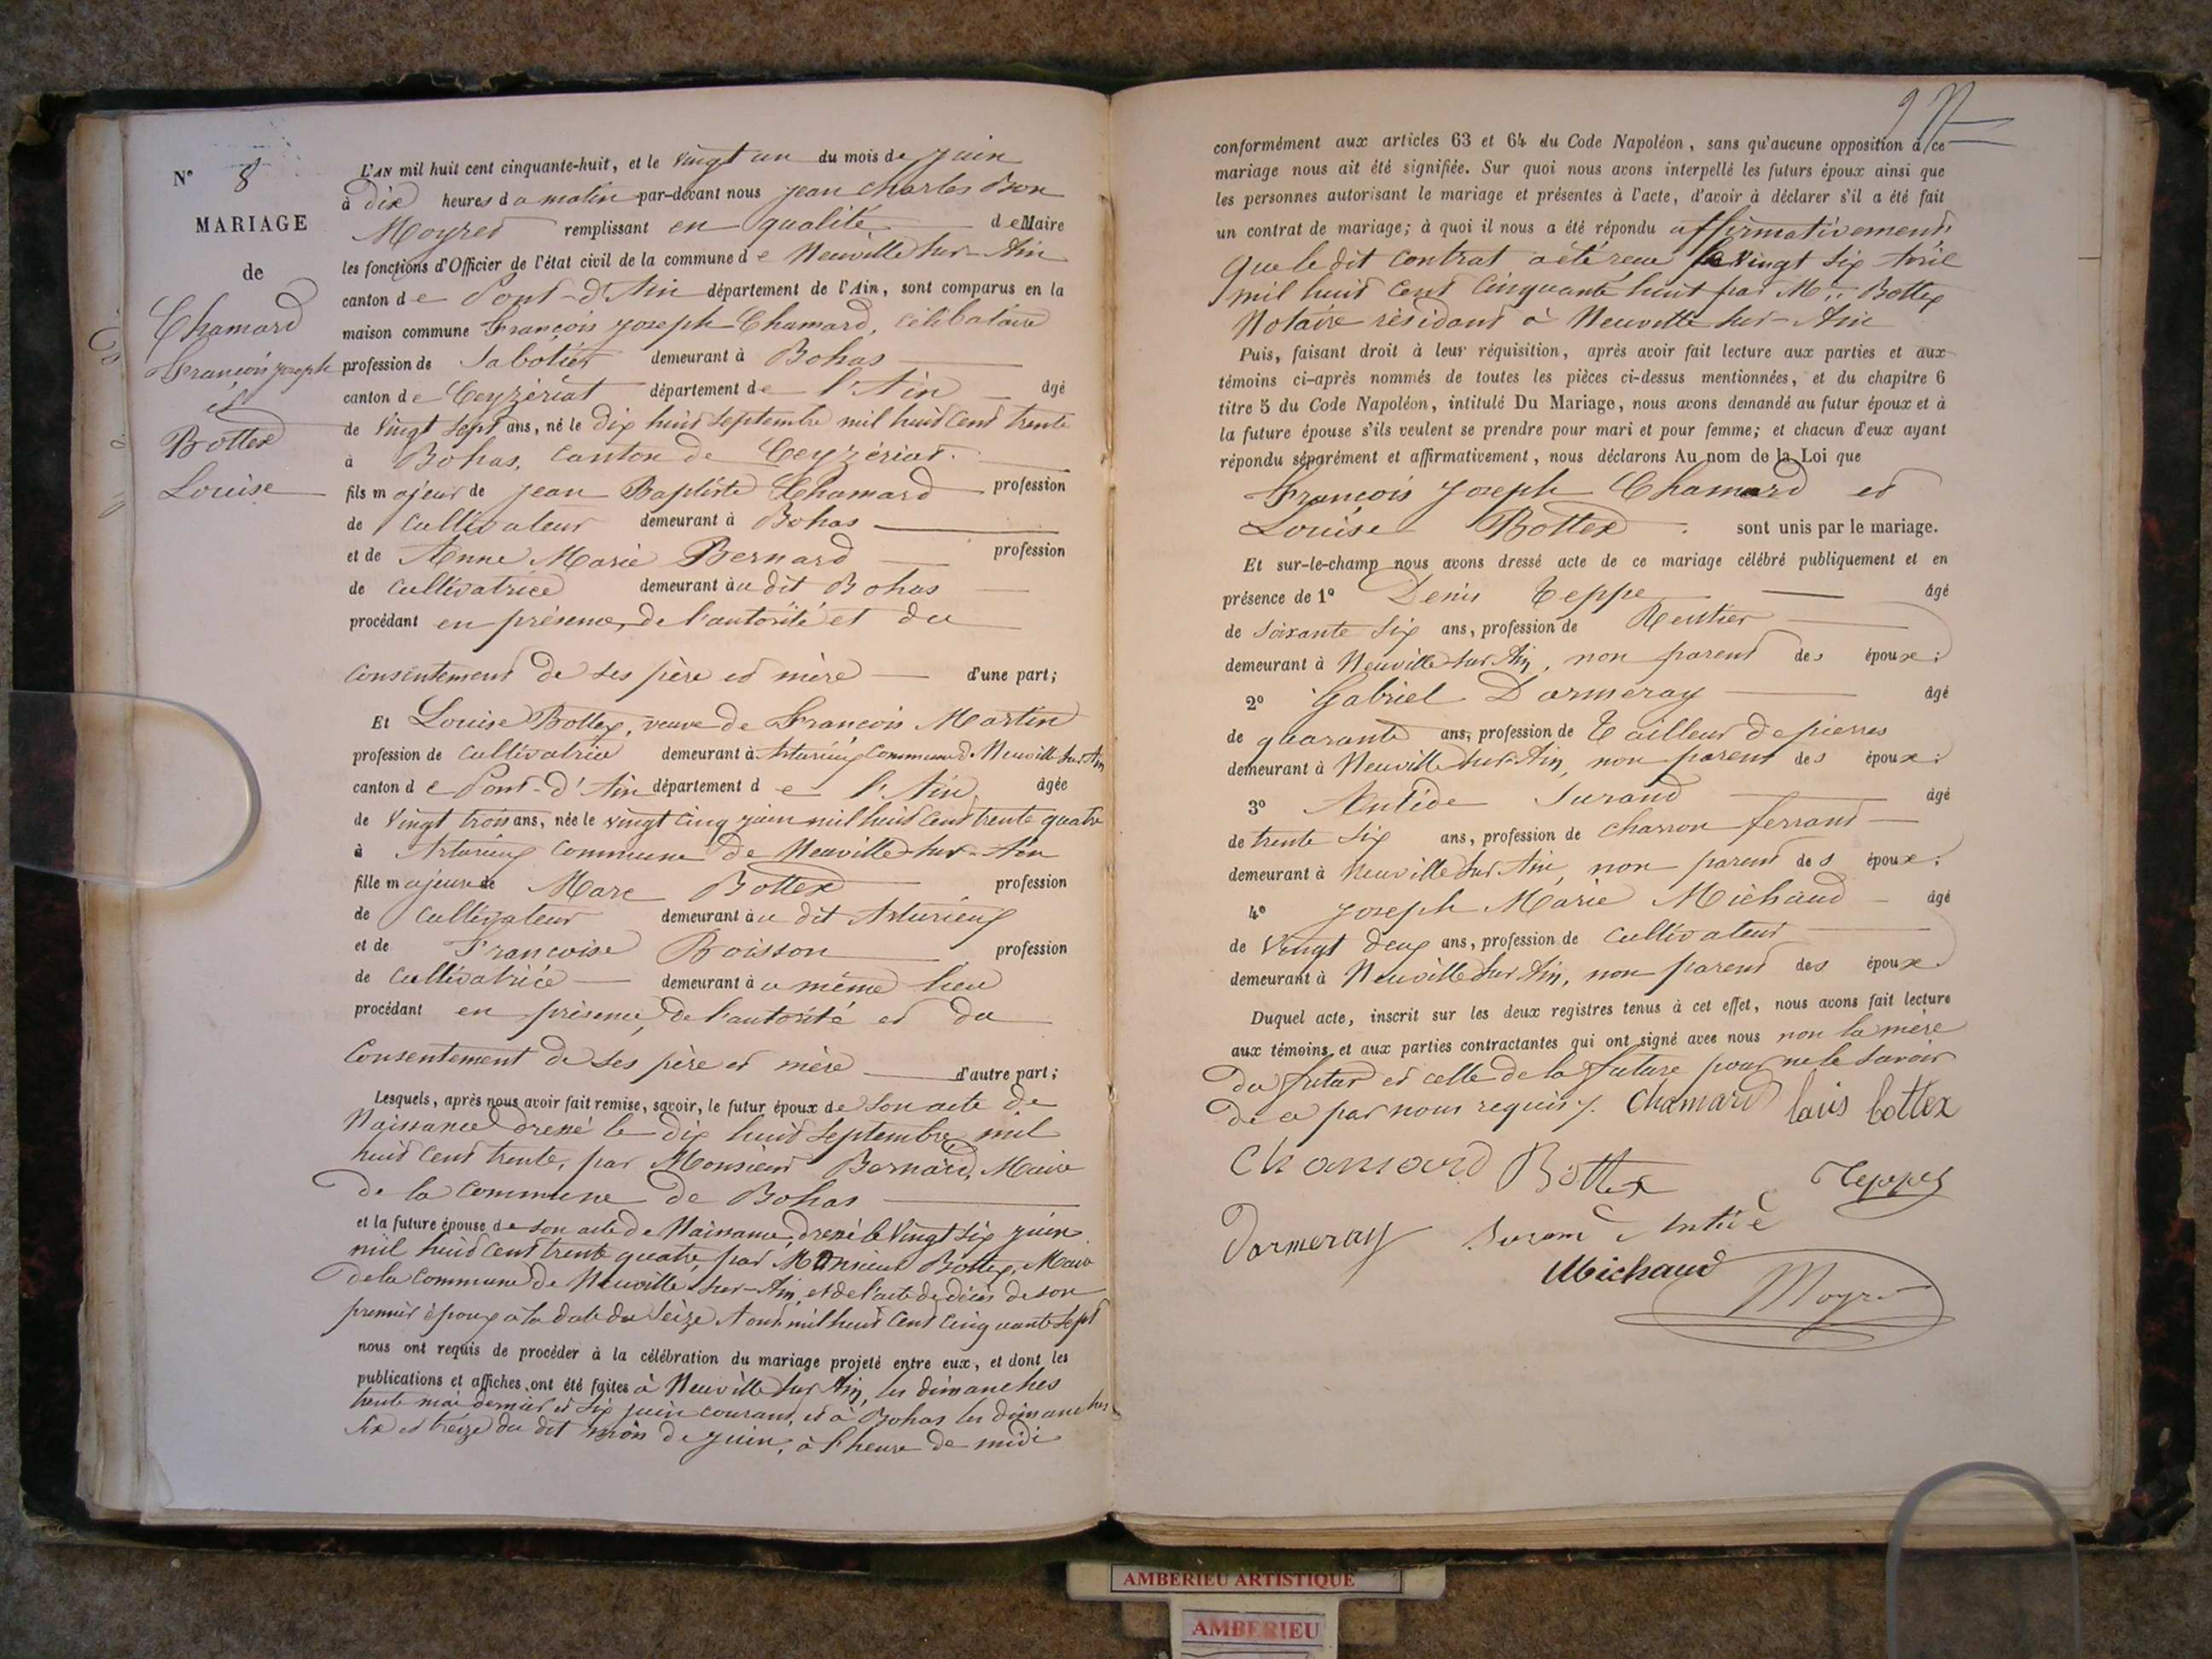 N° 8
MARIAGE
de
Chamard
François joseph
et
Bottex
Louise
L'AN mil huit cent cinquante-huit, et le vingt un du mois de juin
à dix heures du matin par-devant nous jean charles Bon
Moyret remplissant en qualité de Maire
les fonctions d'Officier de l'état civil de la commune de Neuville sur-Ain
canton de Pont-d'Ain département de l'Ain, sont comparus en la
maison commune François joseph Chamard, célibataire
profession de Sabotier demeurant à Bohas
canton de Ceyzériat département de l'Ain âgé
de vingt sept ans, né le dix huit septembre mil huit cent trente
à Bohas, canton de Ceyzériat.
fils majeur de jean Baptiste Chamard profession
de cultivateur demeurant à Bohas
et de Anne Marie Bernard profession
de cultivatrice demeurant au dit Bohas
procédant en présence, de l'autorité et du
consentement de ses père et mère d'une part;
Et Louise Bottex, veuve de François Martin
profession de cultivatrice demeurant à Arturieux commune de Neuville sur Ain
canton de Pont-d'Ain département de l'Ain. âgée
de vingt trois ans, née le vingt cinq juin mil huit cent trente quatre
à Arturieux commune de Neuville-sur-Ain
fille majeure de Marc Bottex profession
de cultivateur demeurant au dit Arturieux
et de Françoise Boisson profession
de cultivatrice demeurant au même lieu
procédant en présence, de l'autorité et du
consentement de ses père et mère d'autre part;
Lesquels, après nous avoir fait remise, savoir, le futur époux de son acte de
Naissance dressé le dix huit septembre mil
huit cent trente, par Monsieur Bernard, Maire
de la commune de Bohas
et la future épouse de son acte de Naissance, dressé le vingt six juin
mil huit cent trente quatre, par Monsieur Bottex, Maire
de la commune de Neuville sur-Ain, et de l'acte de décès de son
premier époux à la date du seize Aout mil huit cent cinquante sept
nous ont requis de procéder à la célébration du mariage projeté entre eux, et dont les
publications et affiches ont été faites à Neuville sur Ain, les dimanches
trente mai dernier et six juin courant, et à Bohas les dimanches
six et treize du dit mois de juin, à l'heure de midi
conformément aux articles 63 et 64 du Code Napoléon, sans qu'aucune opposition à ce
mariage nous ait été signifiée. Sur quoi nous avons interpellé les futurs époux ainsi que
les personnes autorisant le mariage et présentes à l'acte, d'avoir à déclarer s'il a été fait
un contrat de mariage; à quoi il nous a été répondu affirmativement,
que le dit contrat a été reçu le vingt six Avril
mil huit cent cinquante huit par Me Bottex
Notaire résidant à Neuville sur-Ain
Puis, faisant droit à leur réquisition, après avoir fait lecture aux parties et aux
témoins ci-après nommés de toutes les pièces ci-dessus mentionnées, et du chapitre 6
titre 5 du Code Napoléon, intitulé Du Mariage, nous avons demandé au futur époux et à
la future épouse s'ils veulent se prendre pour mari et pour femme; et chacun d'eux ayant
répondu séparément et affirmativement, nous déclarons Au nom de la Loi que
François joseph Chamard et
Louise Bottex sont unis par le mariage.
Et sur-le-champ nous avons dressé acte de ce mariage célébré publiquement et en
présence de 1° Denis Teppe âgé
de soixante six ans, profession de Rentier
demeurant à Neuville sur Ain, non parent des époux;
2° Gabriel Darmeray âgé
de quarante ans, profession de Tailleur de pierres
demeurant à Neuville sur-Ain, non parent des époux;
3° Antide Surand âgé
de trente six ans, profession de charron ferrant
demeurant à Neuville sur Ain, non parent des époux;
4° joseph Marie Michaud âgé
de vingt deux ans, profession de cultivateur
demeurant à Neuville sur Ain, non parent des époux
Duquel acte, inscrit sur les deux registres tenus à cet effet, nous avons fait lecture
aux témoins et aux parties contractantes qui ont signé avec nous non la mère
du futur et celle de la future pour ne le savoir
de ce par nous requis. Chamard louis bottex
Chamard Bottex Teppe
Darmeray Surand Antide
Michaud Moyret
AMBERIEU ARTISTIQUE
AMBERIEU